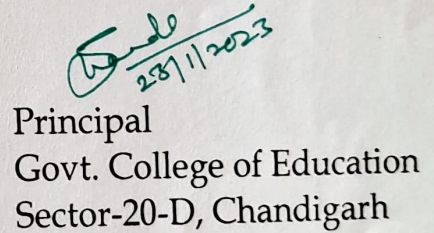 23/1/2023
Principal
Govt. College of Education
Sector-20-D, Chandigarh